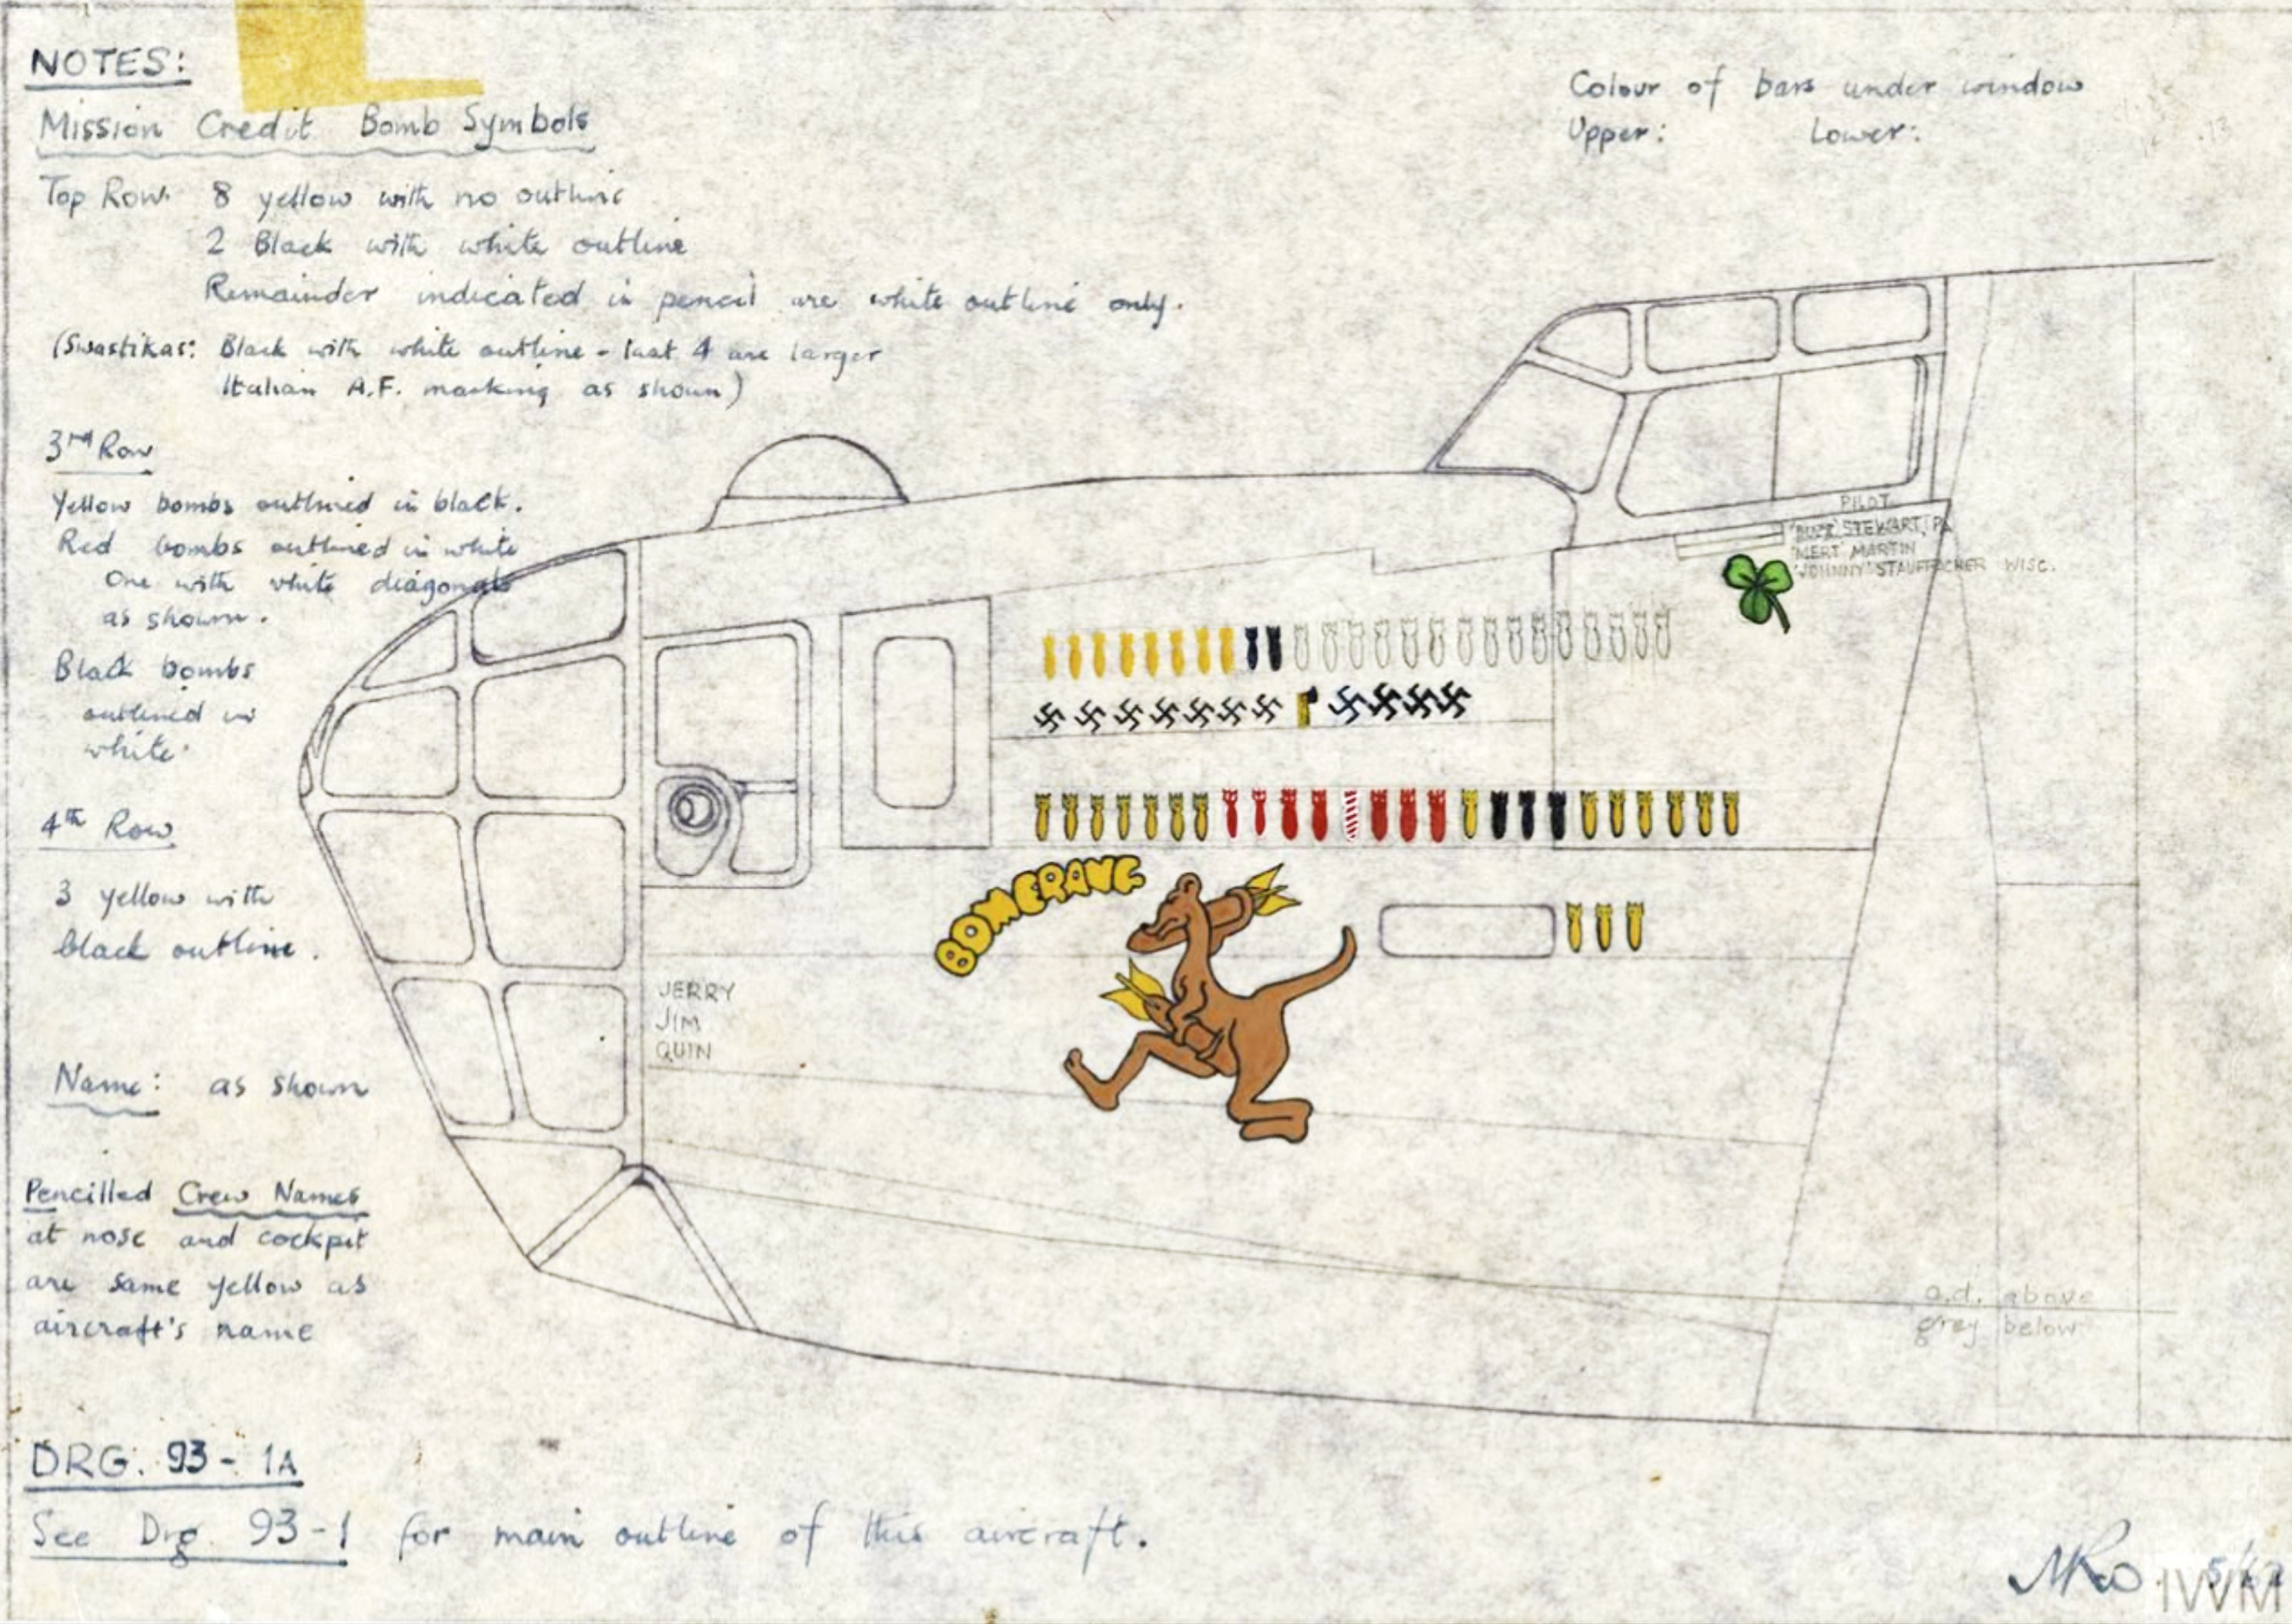 NOTES:
Mission Credit Bomb Symbols
Top Row. 8 yellow with no outline
2 Black with white outline
Remainder indicated in pencil are white outline only.
(Swastikas: Black with white outline - last 4 are larger
Italian A.F. marking as shown)
3rd Row
Yellow bombs outlined in black.
Red bombs outlined in white
One with white diagonals
as shown.
Black bombs
outlined in
white.
4th Row
3 yellow with
black outline.
Name: as shown
Pencilled Crew Names
at nose and cockpit
are same yellow as
aircraft's name
DRG. 93-1A
See Drg. 93-1 for main outline of this aircraft.
Colour of bars under window
Upper: Lower:
PILOT
STEWART, PA
'MERT' MARTIN
'JOHNNY' STAUFFACHER WISC.
BOMERANG
JERRY
JIM
QUIN
o.d. above
grey below
IWM